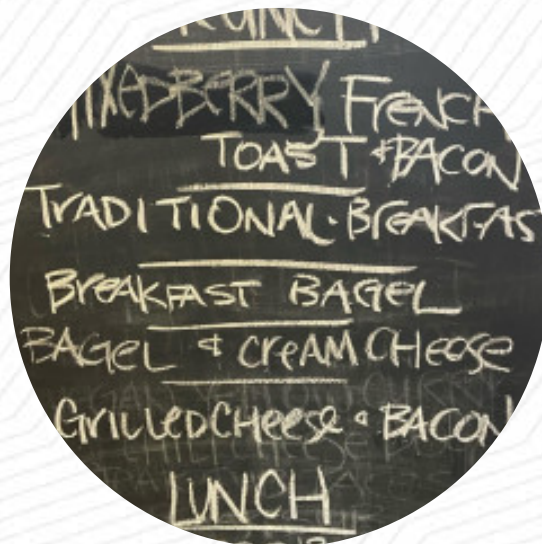 MIXEDBERRY FRENCH
TOAST & BACON
TRADITIONAL BREAKFAST
BREAKFAST BAGEL
BAGEL & CREAM CHEESE
GRILLED CHEESE & BACON
LUNCH